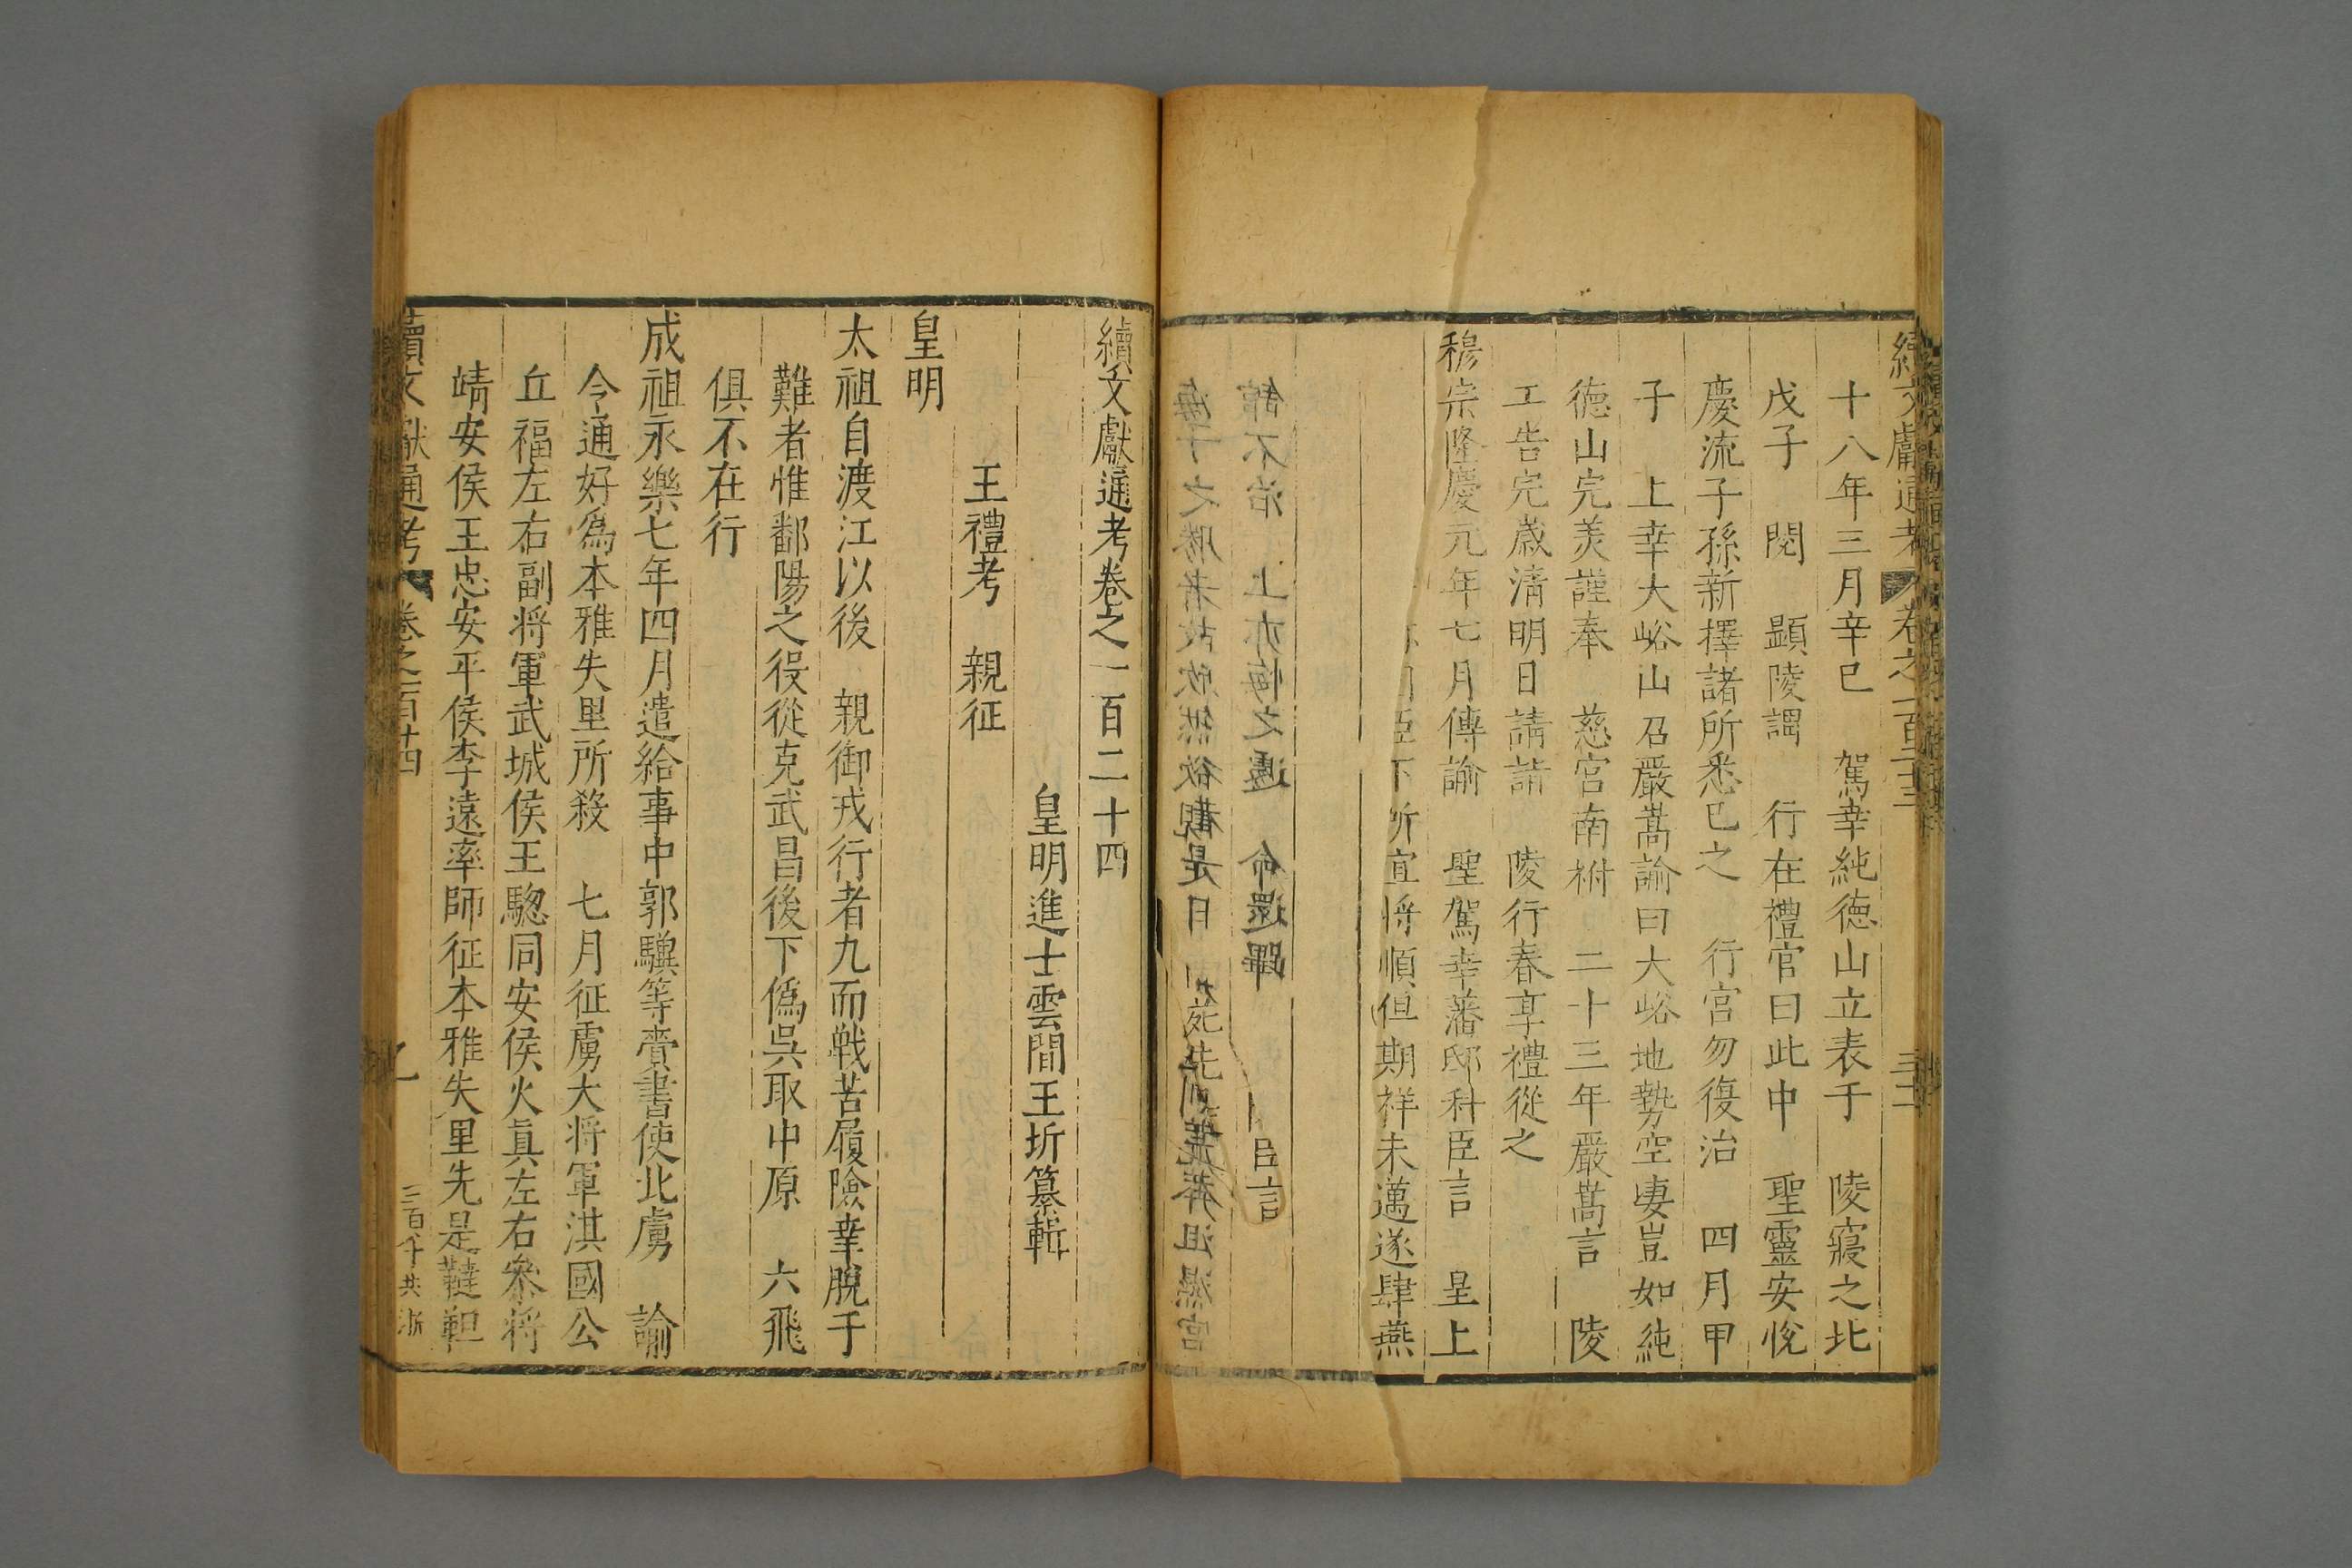 續文獻通考 卷之一百二十三
十八年三月辛巳 駕幸純德山立表于 陵寢之北
戊子 閱 顯陵謂 行在禮官曰此中 聖靈安悅
慶流子孫新擇諸所悉已之 行宮勿復治 四月甲
子 上幸大峪山召嚴嵩諭曰大峪地勢空淒豈如純
德山完美謹奉 慈宮南祔 二十三年嚴嵩言 陵
工告完歲清明日請詣 陵行春享禮從之
穆宗隆慶元年七月傳諭 聖駕幸藩邸科臣言 皇上
下所宜將順但期祥未邁遂肆燕
海子之勝者故欣然欲觀是日 沮濕宮
館不治 上亦悔之遽 命還蹕
續文獻通考卷之一百二十四
皇明進士雲間王圻纂輯
王禮考 親征
皇明
太祖自渡江以後 親御戎行者九而戰苦履險幸脫于
難者惟鄱陽之役從克武昌後下僞吳取中原 六飛
俱不在行
成祖永樂七年四月遣給事中郭驥等賫書使北虜 諭
令通好爲本雅失里所殺 七月征虜大將軍淇國公
丘福左右副將軍武城侯王聰同安侯火眞左右叅將
靖安侯王忠安平侯李遠率師征本雅失里先是韃靼
續文獻通考 卷之一百廿四